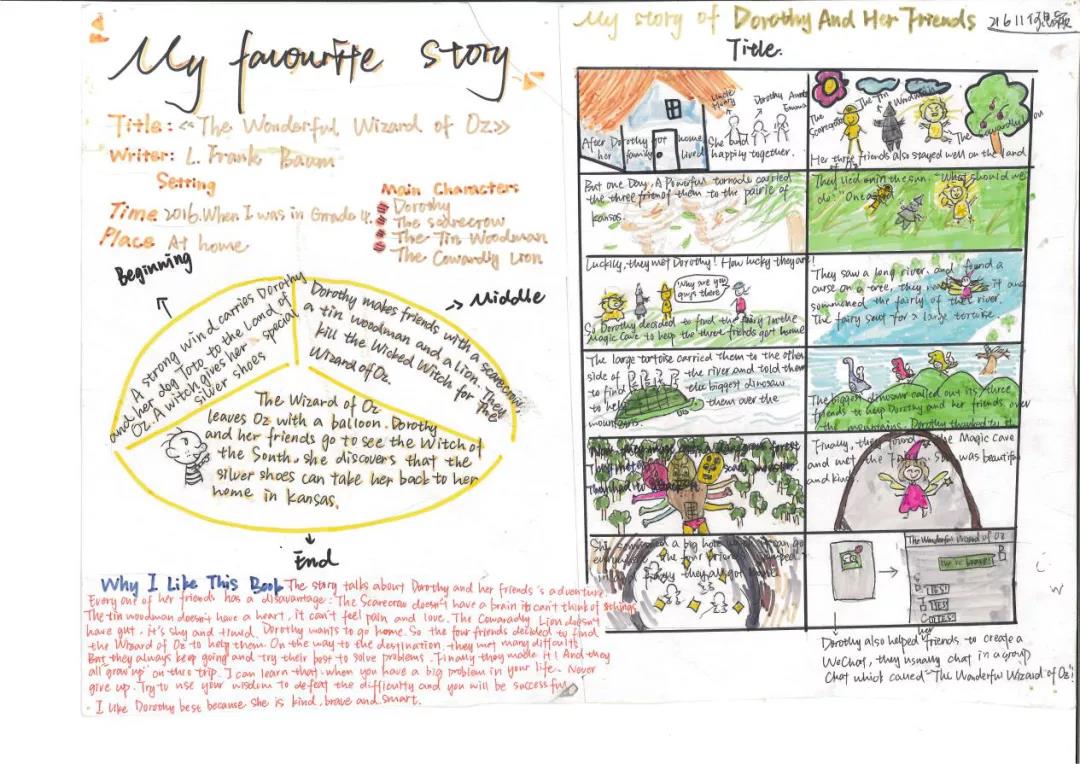 My favourite story
Title: <<The Wonderful Wizard of Oz>>
Writer: L. Frank Baum
Setting
Time 2016. When I was in Grade 4.
Place At home
Main Characters
Dorothy
The scarecrow
The Tin Woodman
The Cowardly Lion
Beginning
A strong wind carries Dorothy
and her dog Toto to the Land of
Oz. A witch gives her special
silver shoes
Middle
Dorothy makes friends with a scarecrow,
a tin woodman and a lion. They
kill the Wicked Witch for the
Wizard of Oz.
The Wizard of Oz
leaves Oz with a balloon. Dorothy
and her friends go to see the Witch of
the South, she discovers that the
silver shoes can take her back to her
home in Kansas.
End
Why I Like This Book The story talks about Dorothy and her friends's adventure.
Every one of her friends has a disavantage: The Scarecrow doesn't have a brain it can't think of things
The tin woodman doesn't have a heart, it can't feel pain and love. The Cowaradly Lion doesn't
have gut, it's shy and timid. Dorothy wants to go home. So the four friends decided to find
the Wizard of Oz to help them. On the way to the destination, they met many difficulti
But they always keep going and try their best to solve problems. Finally they made it! And they
all grow up on this trip. I can learn that when you have a big problem in your life. Never
give up. Try to use your wisdom to defeat the difficulty and you will be successful
I like Dorothy best because she is kind, brave and smart.
My story of Dorothy And Her Friends
Title.
Uncle
Henry
Dorothy Aunt
Emma
After Dorothy got home She and
her family lived happily together.
The Scarecrow
The Tin Woodman
The Cowardly
Her three friends also stayed well on the land
But one Day, A Powerful tornado carried
the three friend of them to the pairie of
kansas.
They lied on in the sun. "What should we
do." One asked
Luckily, they met Dorothy! How lucky they are!
Why are you
guys there
So Dorothy decided to find the fairy in the
Magic cave to help the three friends got home
They saw a long river, and found a
curse on a tree, they it and
summoned the fairly of the river.
The fairy sent for a large tortoise.
The large tortoise carried them to the other
side of the river and told them
to find the biggest dinosaw
to help them over the
mountains.
The biggest dinosaur called out its three
friends to help Dorothy and her friends over
the mountains. Dorothy
forest
They met scary monster
They had to
Finally, they found the Magic Cave
and met the She was beautiful
and kind.
She summoned a big hole it can go
the four friends
Finally they all got home
The Wonderful Wizard of Oz
YES!
YES!
Dorothy also helped her friends to create a
WeChat, they usually chat in a group
chat which called "The Wonderful Wizard of Oz!"